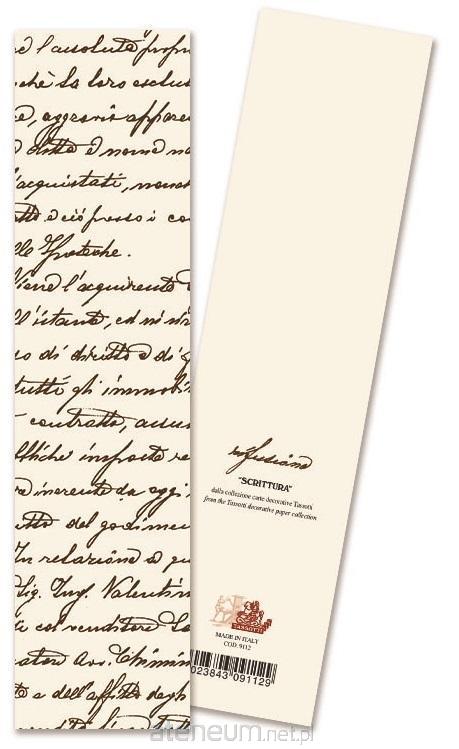 è l'assoluta propri
chè la loro esclus
e, aggravio apparen
ditta e nome
acquistati, nonch
tto e ciò presso i co
lle Ipoteche.
Viene l'acquirente
l'istante, ed
so di diritto e di g
tutti gli immobil
contratto, assu
imposte re
inerente da oggi
tto del godimen
In relazione a qu
Sig. Ing. Valentin
ti col venditore
Avv.
te e dell'affitto degli
"SCRITTURA"
dalla collezione carte decorative Tassotti
from the Tassotti decorative paper collection
TASSOTTI
MADE IN ITALY
COD. 9112
023843 091129
ateneum.net.pl